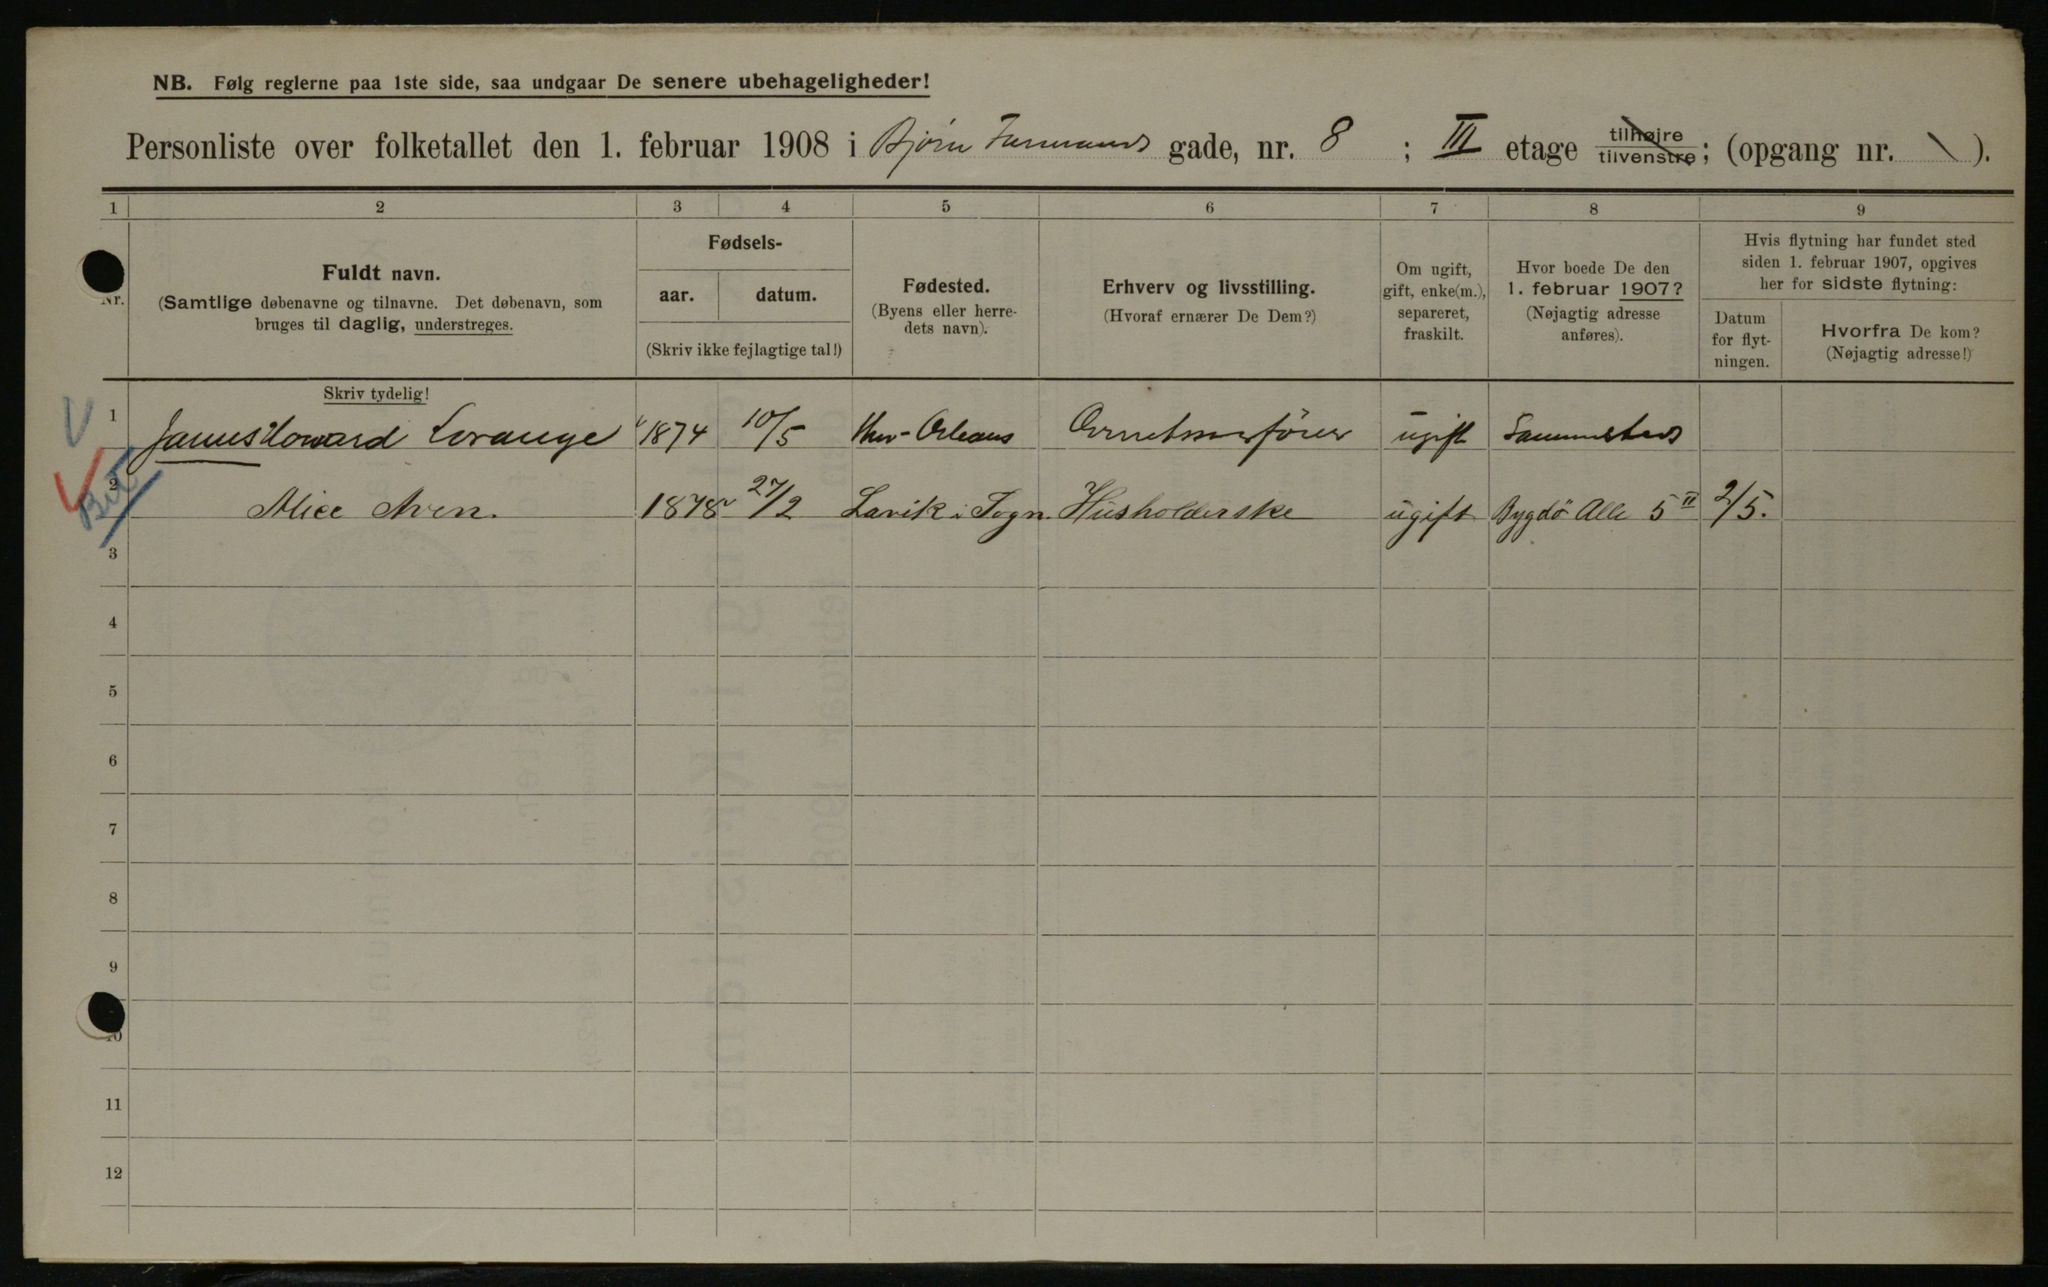 NB. Følg reglerne paa 1ste side, saa undgaar De senere ubehageligheder!
Personliste over folketallet den 1. februar 1908 i Bjørn Farmands gade, nr. 8 ; III etage tilhøjre tilvenstre; (opgang nr. \ ).
1 2 3 4 5 6 7 8 9
Nr.
Fuldt navn.
(Samtlige døbenavne og tilnavne. Det døbenavn, som
bruges til daglig, understreges.
Skriv tydelig!
Fødsels-
aar. datum.
(Skriv ikke fejlagtige tal!)
Fødested.
(Byens eller herre-
dets navn).
Erhverv og livsstilling.
(Hvoraf ernærer De Dem?)
Om ugift,
gift, enke(m.),
separeret,
fraskilt.
Hvor boede De den
1. februar 1907?
(Nøjagtig adresse
anføres).
Hvis flytning har fundet sted
siden 1. februar 1907, opgives
her for sidste flytning:
Datum
for flyt-
ningen.
Hvorfra De kom?
(Nøjagtig adresse!)
1 James Howard Lorange 1874 10/5 New-Orleans ugift Sammesteds
2 Alice Aven. 1878 27/2 Lavik i Sogn. Husholderske ugift Bygdö Alle 5 II 2/5.
3
4
5
6
7
8
9
10
11
12